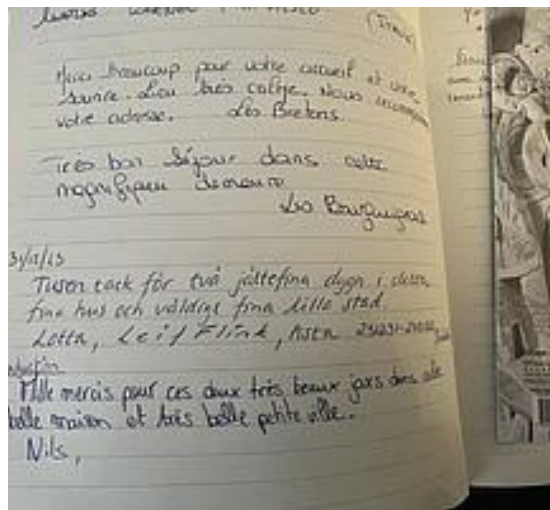 Merci beaucoup pour votre accueil et votre
sourire. Lieu très calme. Nous
votre adresse. Les Bretons
Très bon séjour dans cette
magnifique demeure
Les Bourguignons
31/12/23
Tusen tack för två jättefina dygn i detta
fina hus och väldigt fina lilla stad.
Lotta, Leif Flink,
Mille mercis pour ces deux très beaux jours dans
belle maison et très belle petite ville.
Nils,